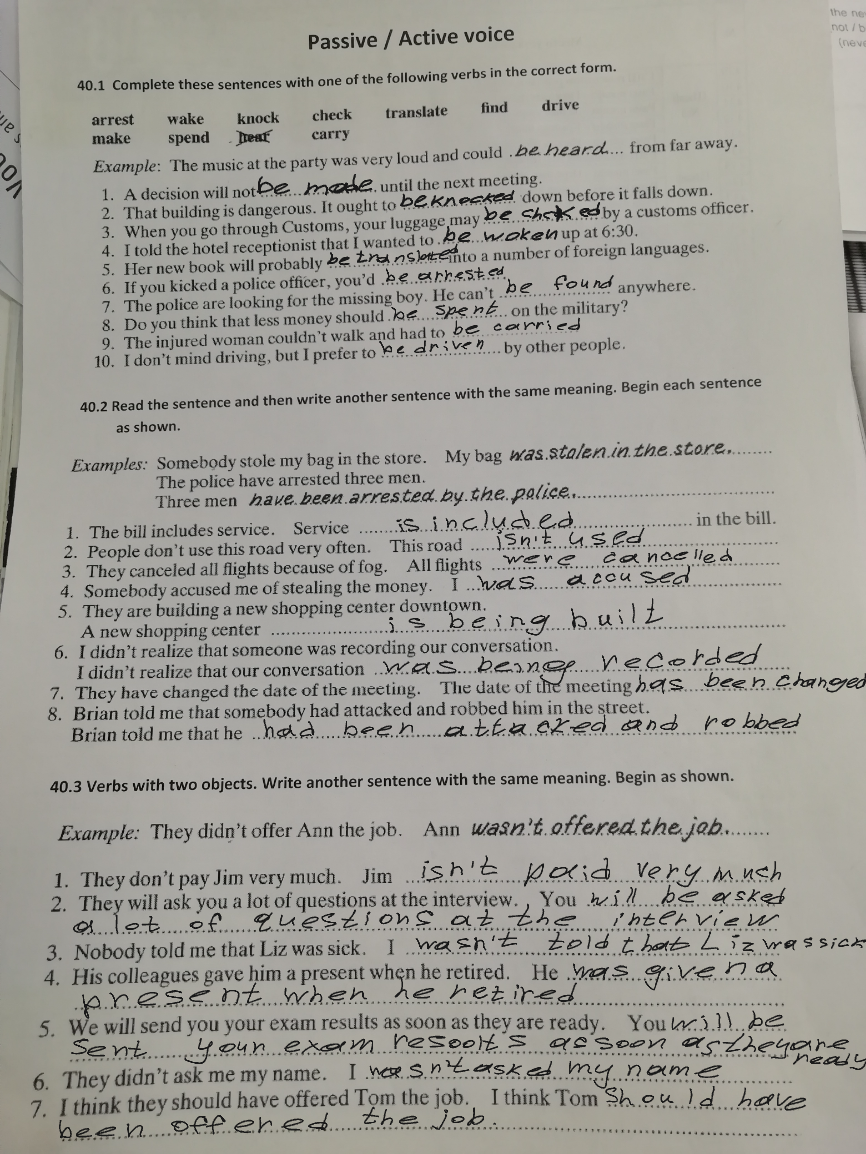 the ne
not / b
(neve
Passive / Active voice
40.1 Complete these sentences with one of the following verbs in the correct form.
arrest wake knock check translate find drive
make spend hear carry
Example: The music at the party was very loud and could be heard from far away.
1. A decision will not be made until the next meeting.
2. That building is dangerous. It ought to be knocked down before it falls down.
3. When you go through Customs, your luggage may be chcked by a customs officer.
4. I told the hotel receptionist that I wanted to be woken up at 6:30.
5. Her new book will probably be translated into a number of foreign languages.
6. If you kicked a police officer, you'd be arrested
7. The police are looking for the missing boy. He can't be found anywhere.
8. Do you think that less money should be spent on the military?
9. The injured woman couldn't walk and had to be carried
10. I don't mind driving, but I prefer to be driven by other people.
40.2 Read the sentence and then write another sentence with the same meaning. Begin each sentence
as shown.
Examples: Somebody stole my bag in the store. My bag was stolen in the store.
The police have arrested three men.
Three men have been arrested by the police.
1. The bill includes service. Service is included in the bill.
2. People don't use this road very often. This road isn't used
3. They canceled all flights because of fog. All flights were cancelled
4. Somebody accused me of stealing the money. I was accused
5. They are building a new shopping center downtown.
A new shopping center is being built
6. I didn't realize that someone was recording our conversation.
I didn't realize that our conversation was being recorded
7. They have changed the date of the meeting. The date of the meeting has been changed
8. Brian told me that somebody had attacked and robbed him in the street.
Brian told me that he had been attacked and robbed
40.3 Verbs with two objects. Write another sentence with the same meaning. Begin as shown.
Example: They didn't offer Ann the job. Ann wasn't offered the job.
1. They don't pay Jim very much. Jim isn't paid very much
2. They will ask you a lot of questions at the interview. You will be asked
a lot of questions at the interview
3. Nobody told me that Liz was sick. I wasn't told that Liz was sick
4. His colleagues gave him a present when he retired. He was given a
present when he retired
5. We will send you your exam results as soon as they are ready. You will be
sent your exam resoolts as soon as they are
ready
6. They didn't ask me my name. I wasn't asked my name
7. I think they should have offered Tom the job. I think Tom should have
been offered the job.